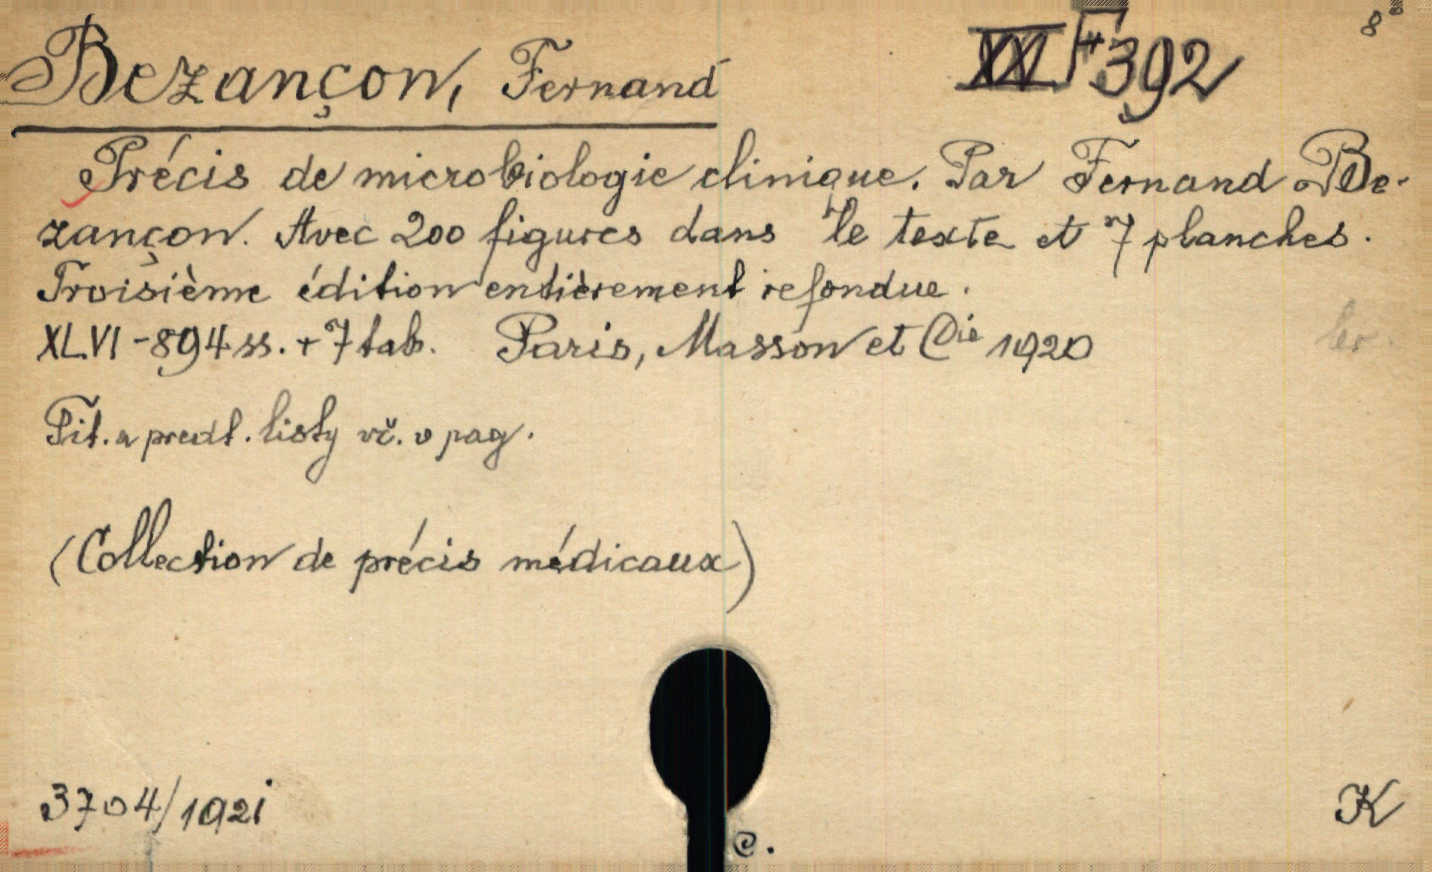 8°
Bezançon, Fernand XXI F 392
Précis de microbiologie clinique. Par Fernand Be-
zançon. Avec 200 figures dans le texte et 7 planches.
Troisième édition entièrement refondue.
XLVI-894 ss. + 7 tab. Paris, Masson et Cie 1920
Tit. a předt. listy vč. v pag.
(Collection de précis médicaux)
3704/1921
K